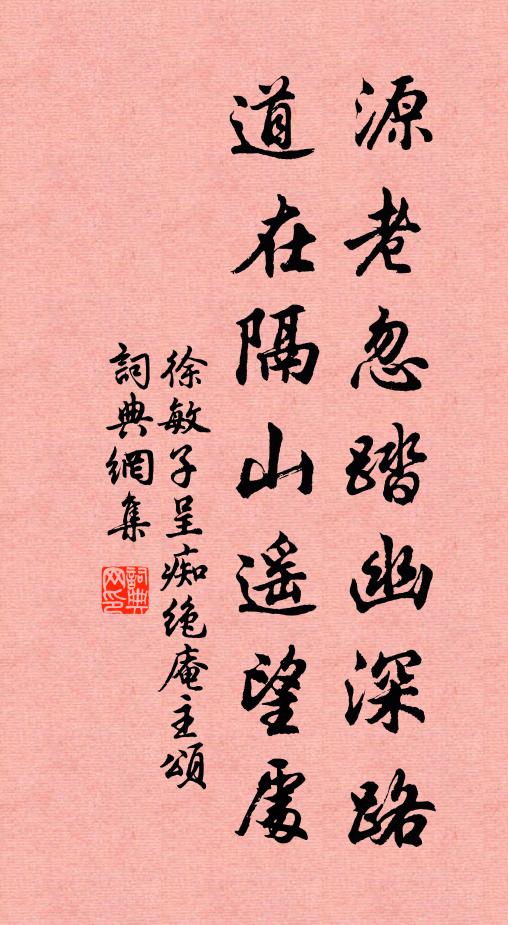 源老忽踏幽深路
道在隔山遥望處
徐敏子呈痴绝庵主頌
詞典網集
詞典网印